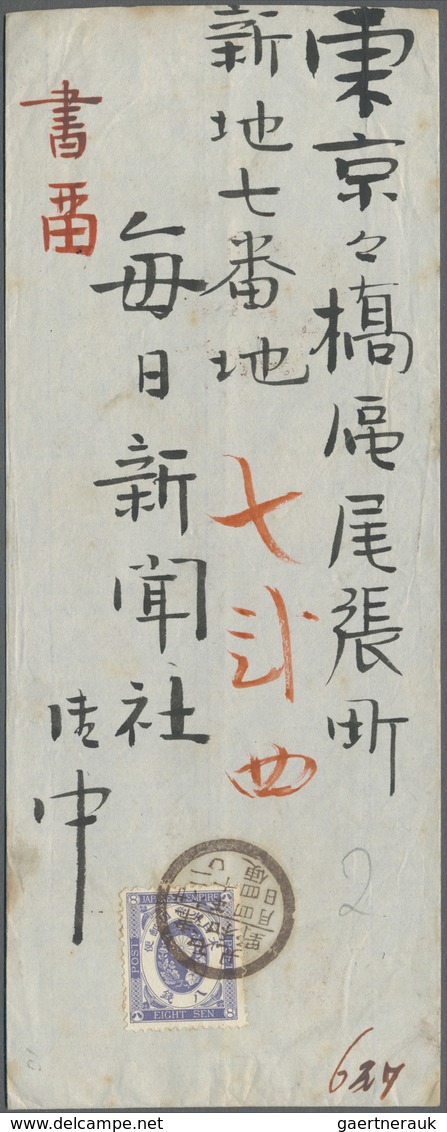 東京々橋區尾張町
新地七番地
毎日新聞社
御中
書留
七弐四
JAPANESE EMPIRE
POST
八銭
EIGHT SEN
8
8
2
627
gaertnerauk